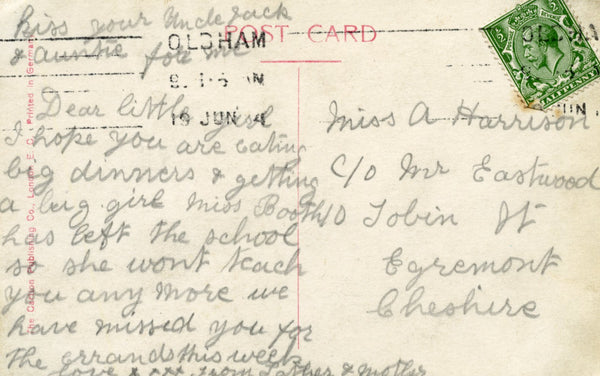 Kiss your Uncle Jack
& auntie for me
POST CARD
OLDHAM
19 JUN 4
Dear little girl
I hope you are eating
big dinners & getting
a big girl Miss Booth
has left the school
so she wont teach
you any more we
have missed you for
the errands this week
love & xxx from Father & Mother
Miss A Harrison
C/o Mr Eastwood
10 Tobin St
Egremont
Cheshire
HALFPENNY
JUN
The Carlton Publishing Co., London, E. C. Printed in Germany